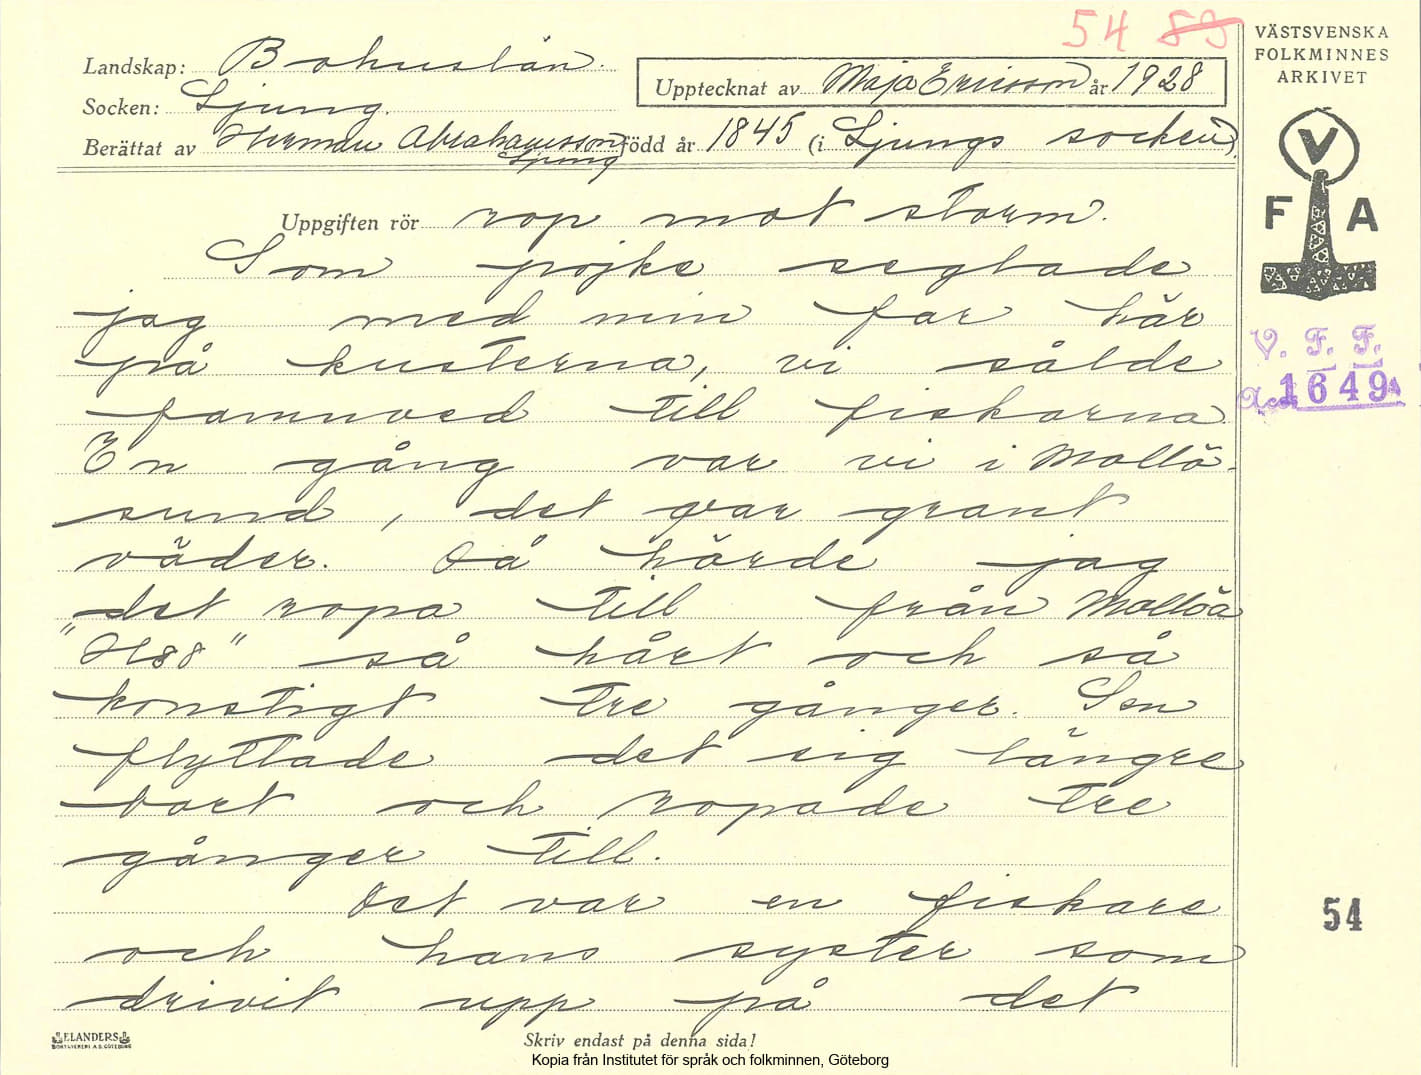 54 89
VÄSTSVENSKA
FOLKMINNES
ARKIVET
Landskap: Bohuslän.
Upptecknat av Maja Ericsson år 1928
Socken: Ljung.
Berättat av Herman Abrahamsson född år 1845 (i Ljungs socken).
Ljung
V
F A
Uppgiften rör rop mot storm.
Som pojke seglade
jag med min far här
på kusterna, vi sålde
famnved till fiskarna.
En gång var vi i Mollö-
sund, det var grant
väder. Då hörde jag
det ropa till från Mollöa
"H88" så hårt och så
konstigt tre gånger. Sen
flyttade det sig längre
bort och ropade tre
gånger till.
Det var en fiskare
och hans syster som
drivit upp på det
V. F. F.
Acc. 1649
54
ELANDERS
BOKTRYCKERI A.B. GÖTEBORG
Skriv endast på denna sida!
Kopia från Institutet för språk och folkminnen, Göteborg